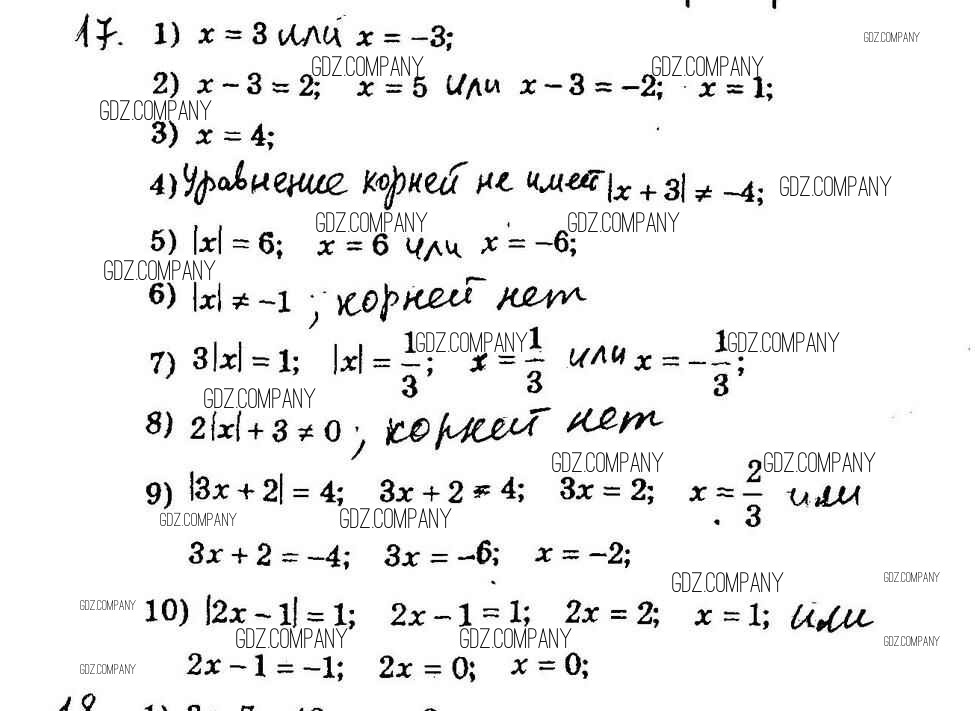 17. 1) x = 3 или x = −3;
GDZ.COMPANY
GDZ.COMPANY GDZ.COMPANY
2) x − 3 = 2; x = 5 или x − 3 = −2; x = 1;
GDZ.COMPANY
3) x = 4;
4) Уравнение корней не имеет |x + 3| ≠ −4; GDZ.COMPANY
GDZ.COMPANY GDZ.COMPANY
5) |x| = 6; x = 6 или x = −6;
GDZ.COMPANY
6) |x| ≠ −1 ; корней нет
GDZ.COMPANY GDZ.COMPANY
7) 3|x| = 1; |x| = 1/3; x = 1/3 или x = −1/3;
GDZ.COMPANY
8) 2|x| + 3 ≠ 0 ; корней нет
GDZ.COMPANY GDZ.COMPANY
9) |3x + 2| = 4; 3x + 2 = 4; 3x = 2; x = 2/3 или
GDZ.COMPANY GDZ.COMPANY
3x + 2 = −4; 3x = −6; x = −2;
GDZ.COMPANY GDZ.COMPANY
GDZ.COMPANY
10) |2x − 1| = 1; 2x − 1 = 1; 2x = 2; x = 1; или
GDZ.COMPANY GDZ.COMPANY GDZ.COMPANY
2x − 1 = −1; 2x = 0; x = 0;
GDZ.COMPANY